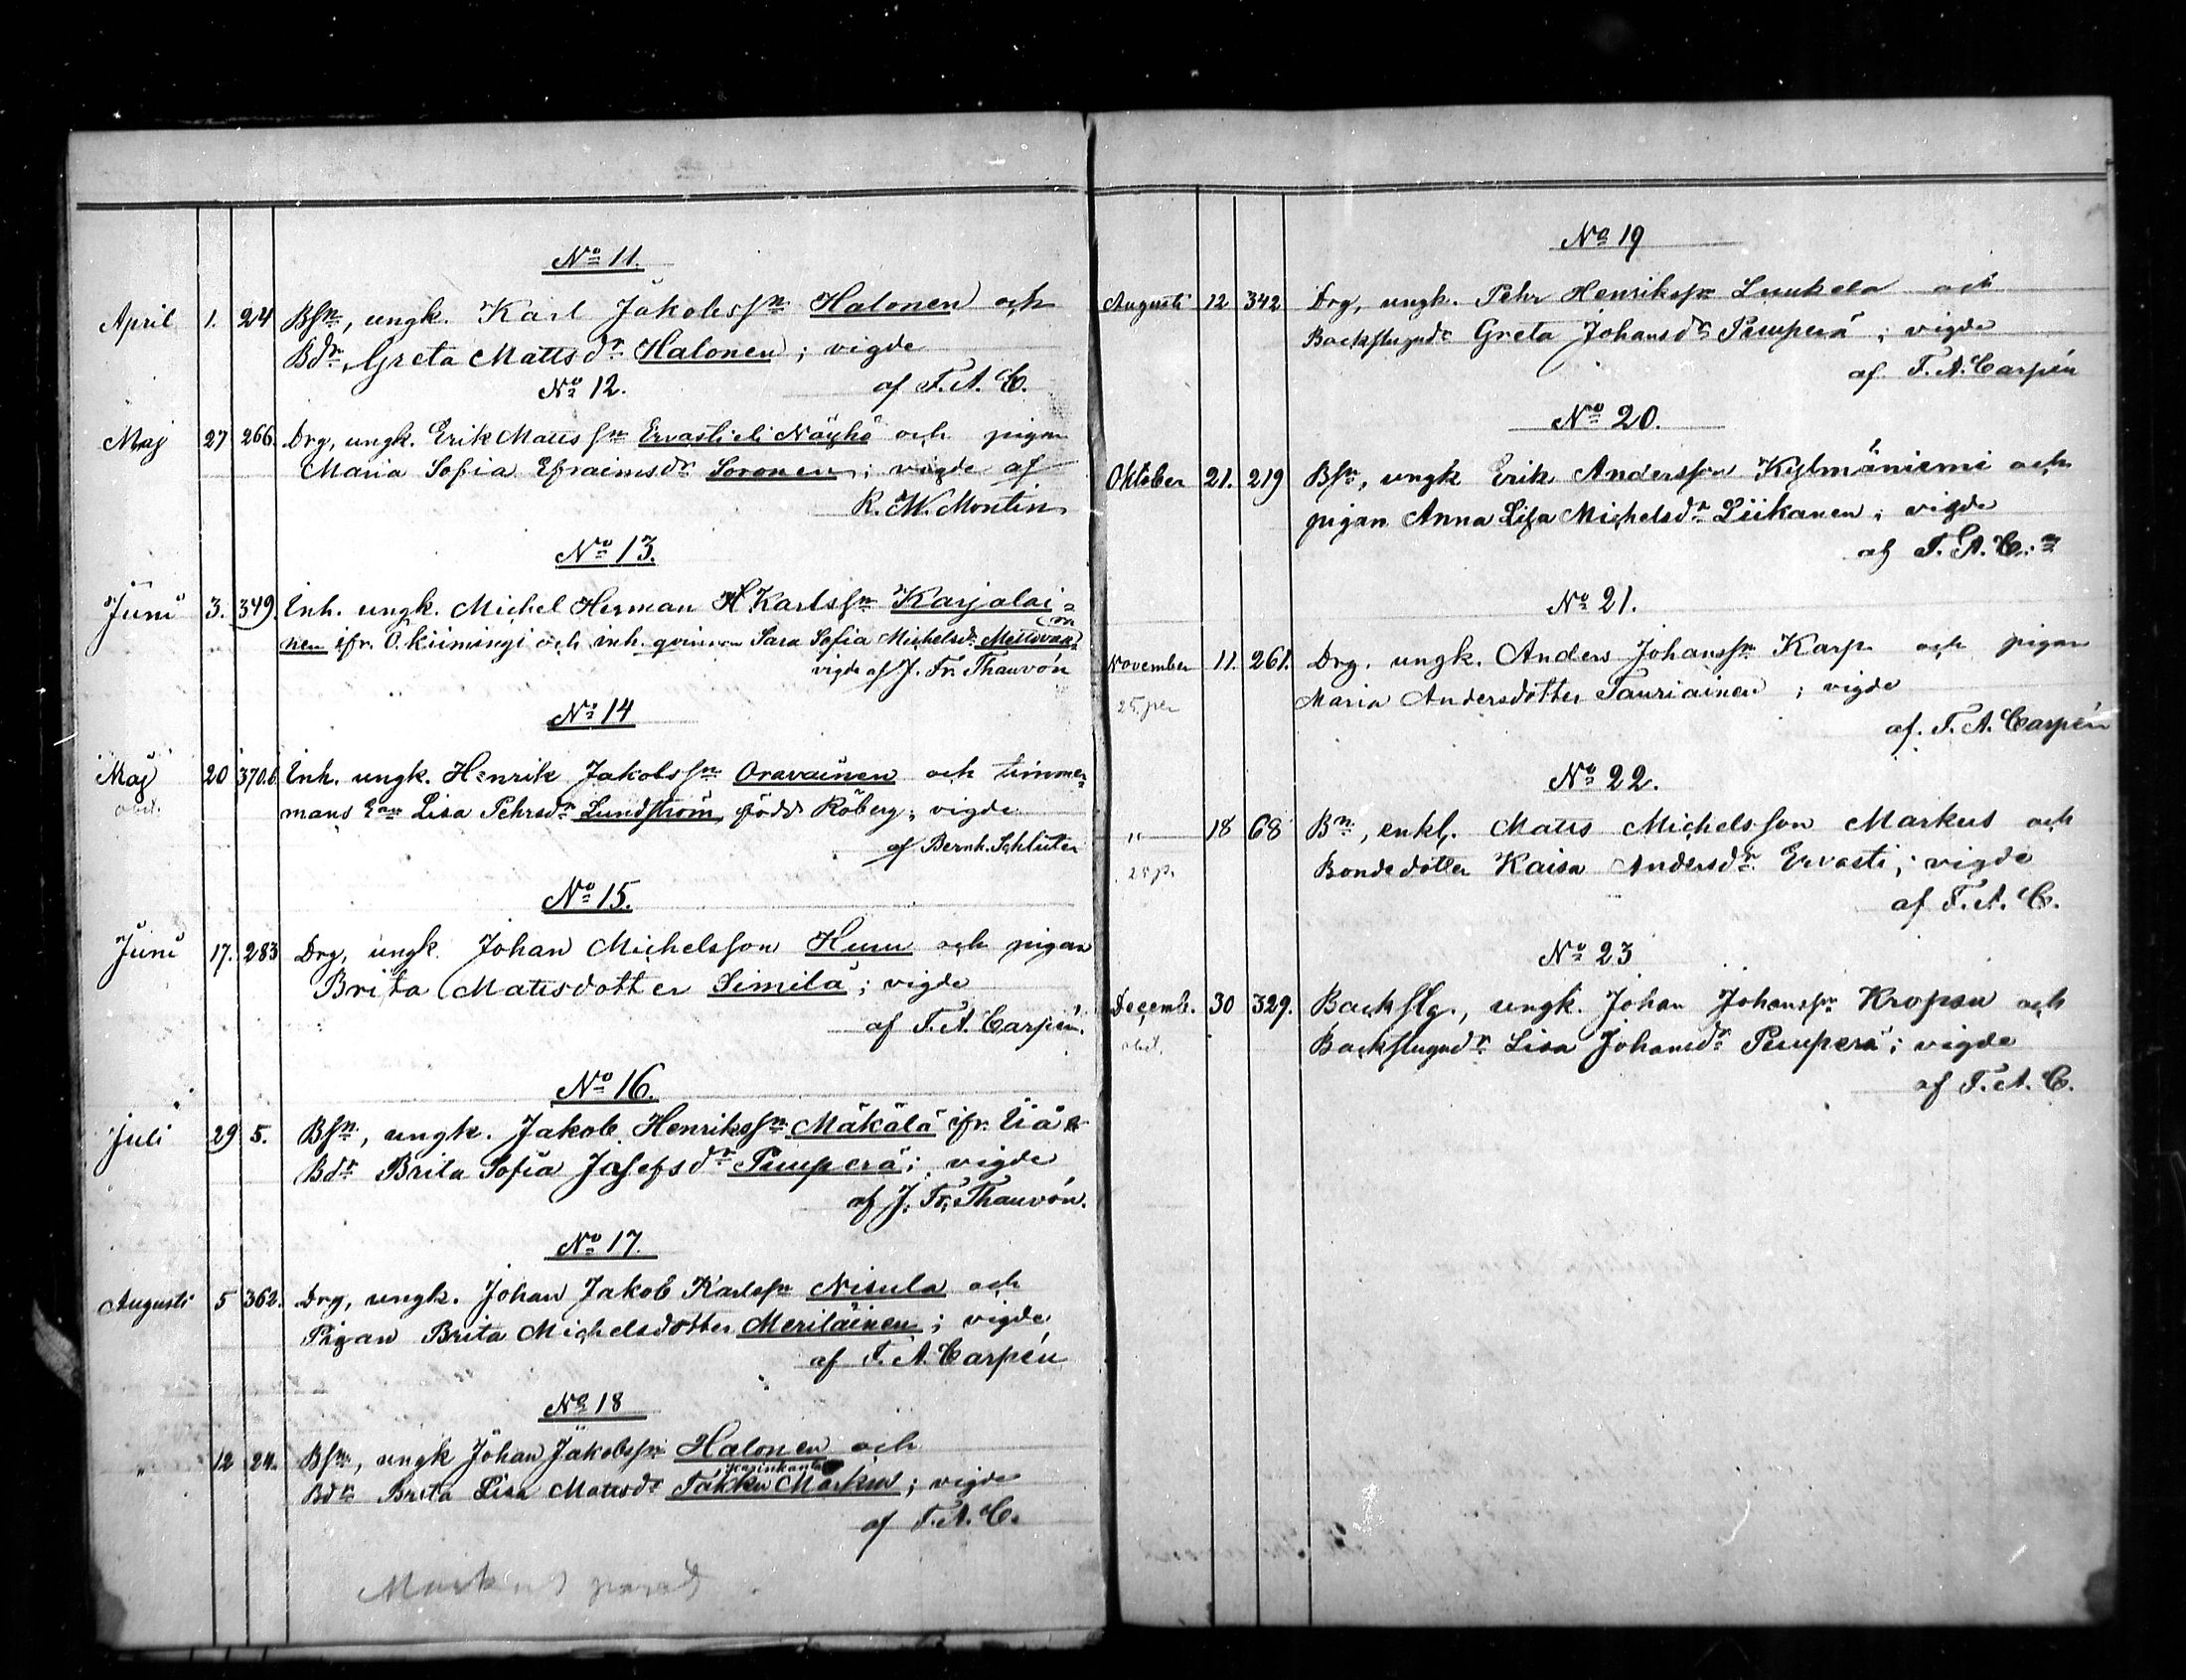 No 11.
April 1. 24 Bsn, ungk. Karl Jakobssn Halonen och
Bdr, Greta Mattsdr Halonen; vigde
No 12. af F. A. C.
Maj 27 266. Drg, ungk. Erik Mattssn Ervasti och pigan
Maria Sofia Efraimsdr Soronen; vigde af
R. W. Montin
No 13.
Juni 3. 349. Inh. ungk. Michel Herman Karlssn Karjalai=
nen ifr. Ö. kiimingi och inh. qvinnan Sara Sofia Michelsdr
vigde af J. Fr. Thauvón
No 14
Maj 20 370.b. Inh. ungk. Henrik Jakobssn Oravainen och timmer=
obet. mans Lisa Pehrsdr Lundström, född Råberg; vigde
af Bernh. Schlüter
No 15.
Juni 17. 283 Drg, ungk. Johan Michelsson Huru och pigan
Brita Mattsdotter Similä; vigde
af F. A. Carpén.
No 16.
Juli 29 5. Bsn, ungk. Jakob Henrikssn Mäkälä ifr.
Bdr Brita Sofia Josefsdr Puuperä; vigde
af J. Fr. Thauvón.
No 17.
Augusti 5 362. Drg, ungk. Johan Jakob Karlssn Nisula och
Pigan Brita Michelsdotter Meriläinen; vigde
af F. A. Carpén
No 18
" 12 24. Bsn, ungk Johan Jakobssn Halonen och
Bdr Brita Lisa Mattsdr Takku Markus; vigde
af F. A. C.
Markus
No 19
Augusti 12 342 Drg, ungk. Pehr Henrikssn Luukela och
Backstugudr Greta Johansdr Puuperä; vigde
af F. A. Carpén
No 20.
Oktober 21. 219 Bsn, ungk Erik Andersson Kylmäniemi och
pigan Anna Lisa Michelsdr Liikanen; vigde
af F. A. C:n
No 21.
November 11. 261. Drg. ungk. Anders Johanssn Karp och pigan
25 pen Maria Andersdotter Tauriainen; vigde
af. F. A. Carpén
No 22.
" 18 68 Bn, enkl. Matts Michelsson Markus och
25 p. Bondedotter Kaisa Andersdr Ervasti; vigde
af F. A. C.
No 23
Decemb. 30 329. Backstg., ungk. Johan Johanssn Kropsu och
obet. Backstugudr Lisa Johansdr Puuperä; vigde
af F. A. C.